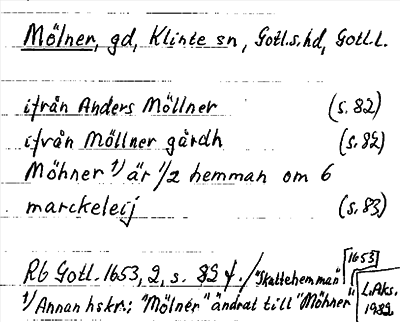 Mölner, gd, Klinte sn, Gotl.s.hd, Gotl.l.
ifrån Anders Möllner (s.82)
ifrån Möllner gårdh (s.82)
Möhner 1) är 1/2 hemman om 6
marckeleij (s.83)
Rb Gotl. 1653, 2, s. 82 f. /"Skattehemman" [1653]
1) Annan hskr.; "Mölner" ändrat till "Möhner"
L.Aks.
1982.